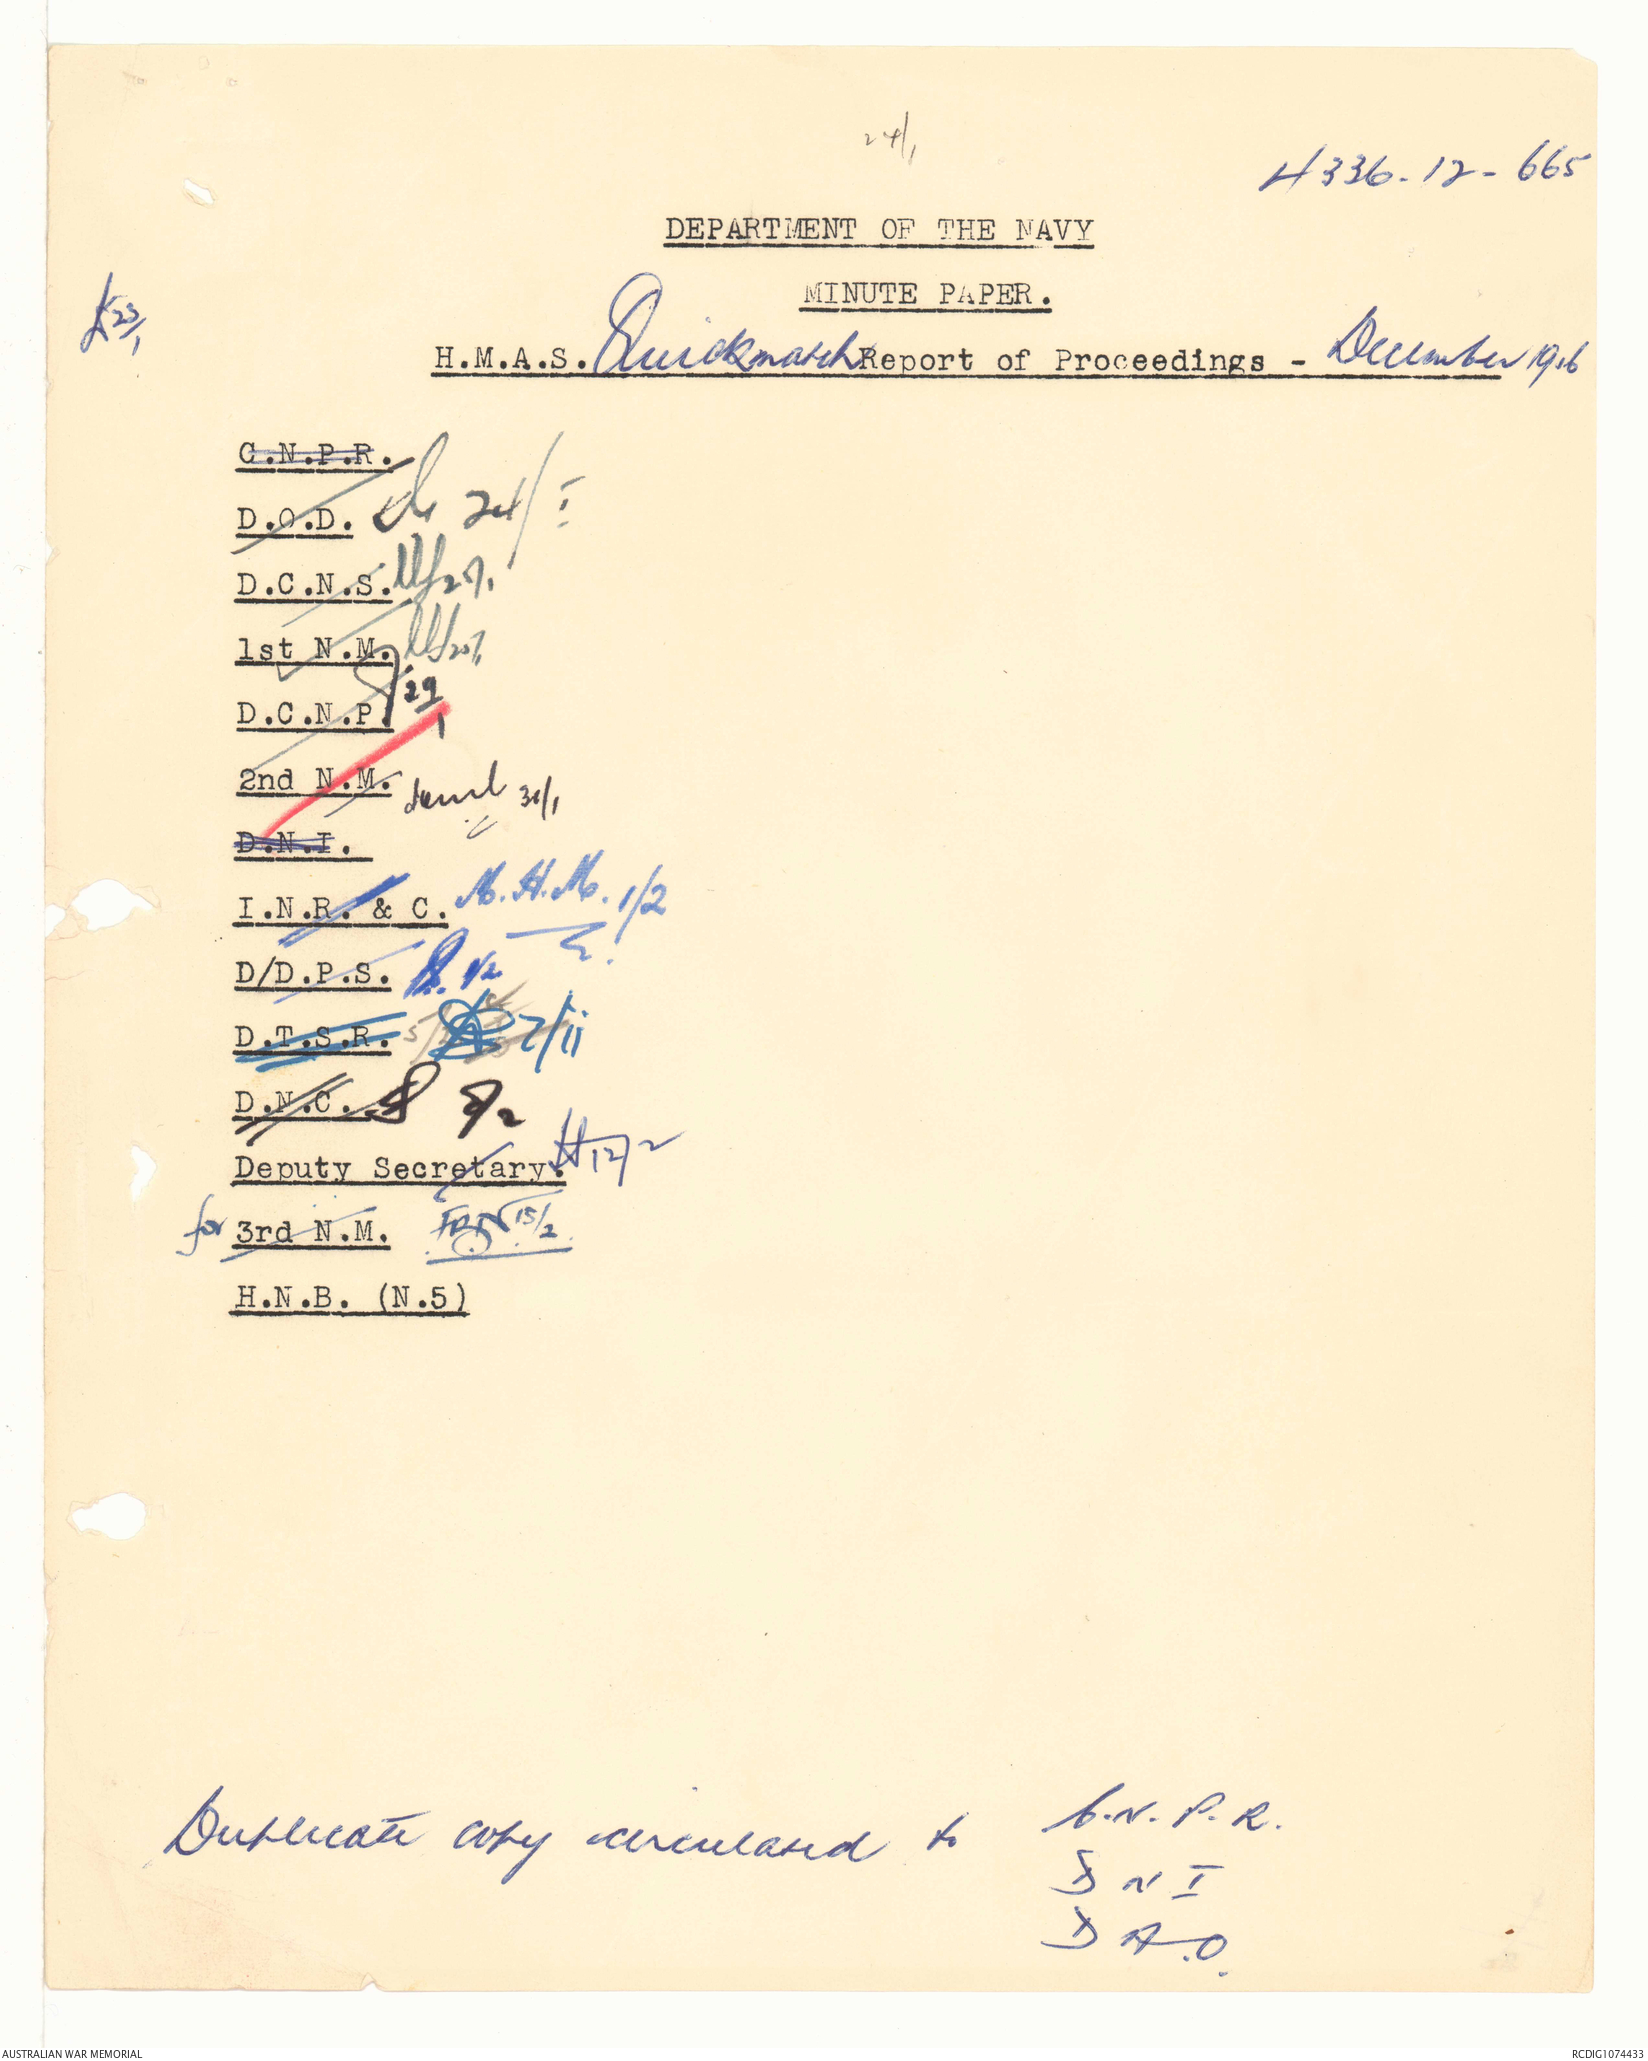 24/1
4336-12-665
DEPARTMENT OF THE NAVY
MINUTE PAPER.
23/1
H.M.A.S. Quickmatch Report of Proceedings - December 1956
C.N.P.R.
D.O.D. 24/1
D.C.N.S. 25/1
1st N.M. 25/1
D.C.N.P. 29/1
2nd N.M. 30/1
D.N.I.
I.N.R. & C. M.H.M. 1/2
D/D.P.S. 1/2
D.T.S.R. 7/ii
D.N.C. 8/2
Deputy Secretary. 12/2
for 3rd N.M. 15/2
H.N.B. (N.5)
Duplicate copy circulated to C.N.P.R.
D N I
D A.O.
AUSTRALIAN WAR MEMORIAL RCDIG1074433